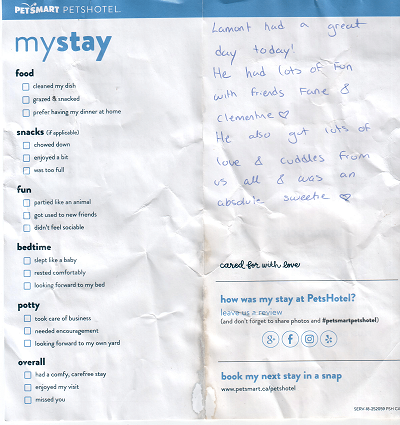 PETSMART PETSHOTEL
mystay
food
cleaned my dish
grazed & snacked
prefer having my dinner at home
snacks (if applicable)
chowed down
enjoyed a bit
was too full
fun
partied like an animal
got used to new friends
didn't feel sociable
bedtime
slept like a baby
rested comfortably
looking forward to my bed
potty
took care of business
needed encouragement
looking forward to my own yard
overall
had a comfy, carefree stay
enjoyed my visit
missed you
Lamont had a great
day today!
He had lots of fun
with friends Fane &
clementine ♡
He also got lots of
love & cuddles from
us all & was an
absolute sweetie ♡
cared for with love
how was my stay at PetsHotel?
leave us a review
(and don't forget to share photos and #petsmartpetshotel)
g+ f
book my next stay in a snap
www.petsmart.ca/petshotel